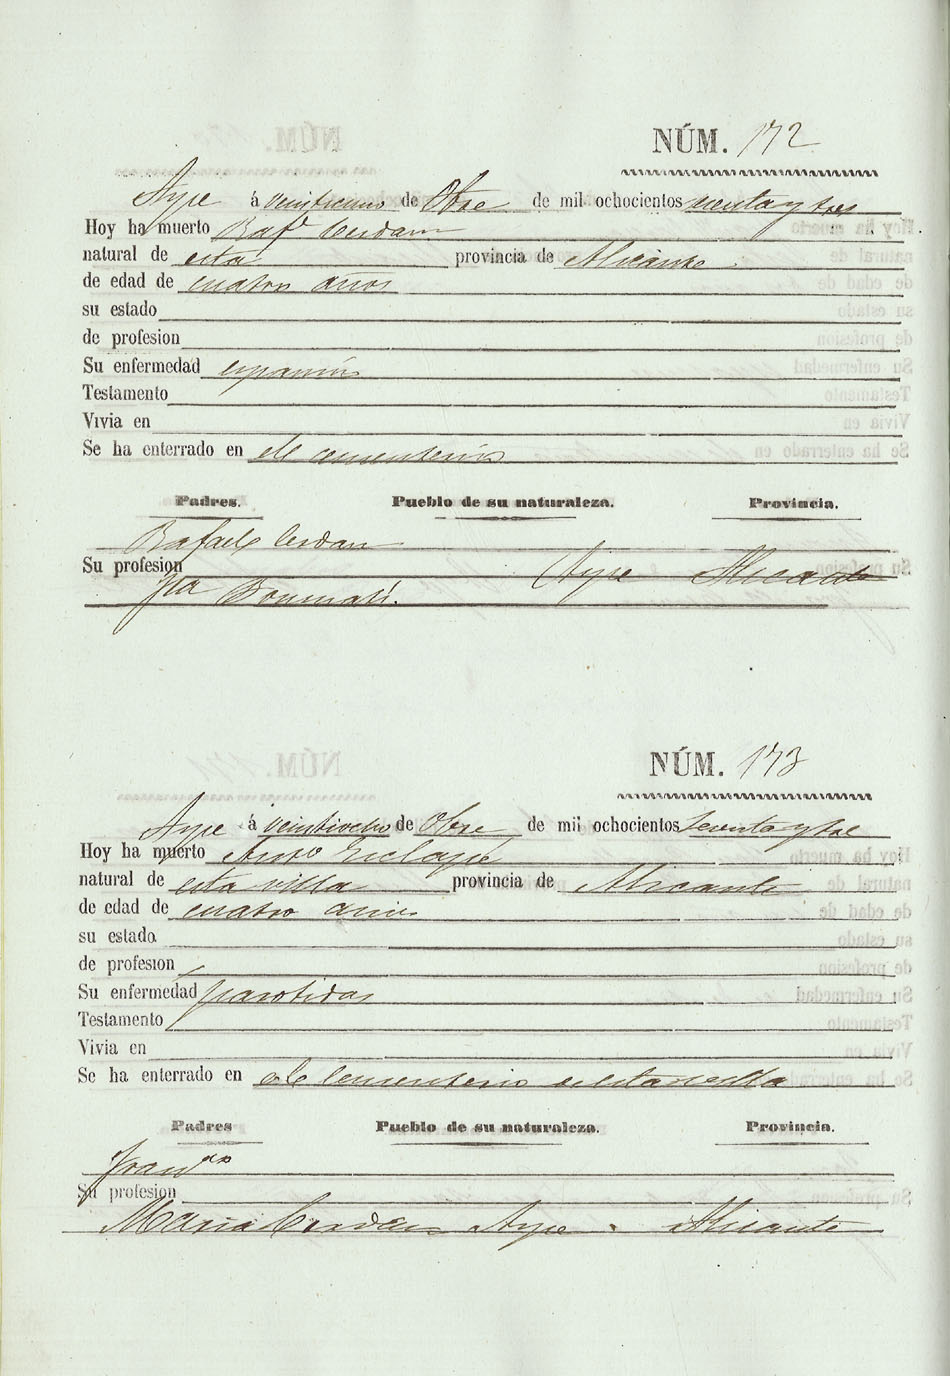 NÚM. 172
Aspe á de Obre de mil ochocientos y tres
Hoy ha muerto Raf.l Cerdan
natural de esta provincia de Alicante.
de edad de cuatro años
su estado
de profesion
Su enfermedad
Testamento
Vivia en
Se ha enterrado en el cementerio
Padres. Pueblo de su naturaleza. Provincia.
Rafael Cerdan
Su profesion Aspe Alicante
NÚM. 173
Aspe á veintiocho de Obre de mil ochocientos y tres
Hoy ha muerto
natural de esta villa provincia de Alicante
de edad de cuatro años
su estado
de profesion
Su enfermedad parotidas
Testamento
Vivia en
Se ha enterrado en el Cementerio
Padres Pueblo de su naturaleza. Provincia.
Fran.co
Su profesion
Maria Cerdan Aspe. Alicante